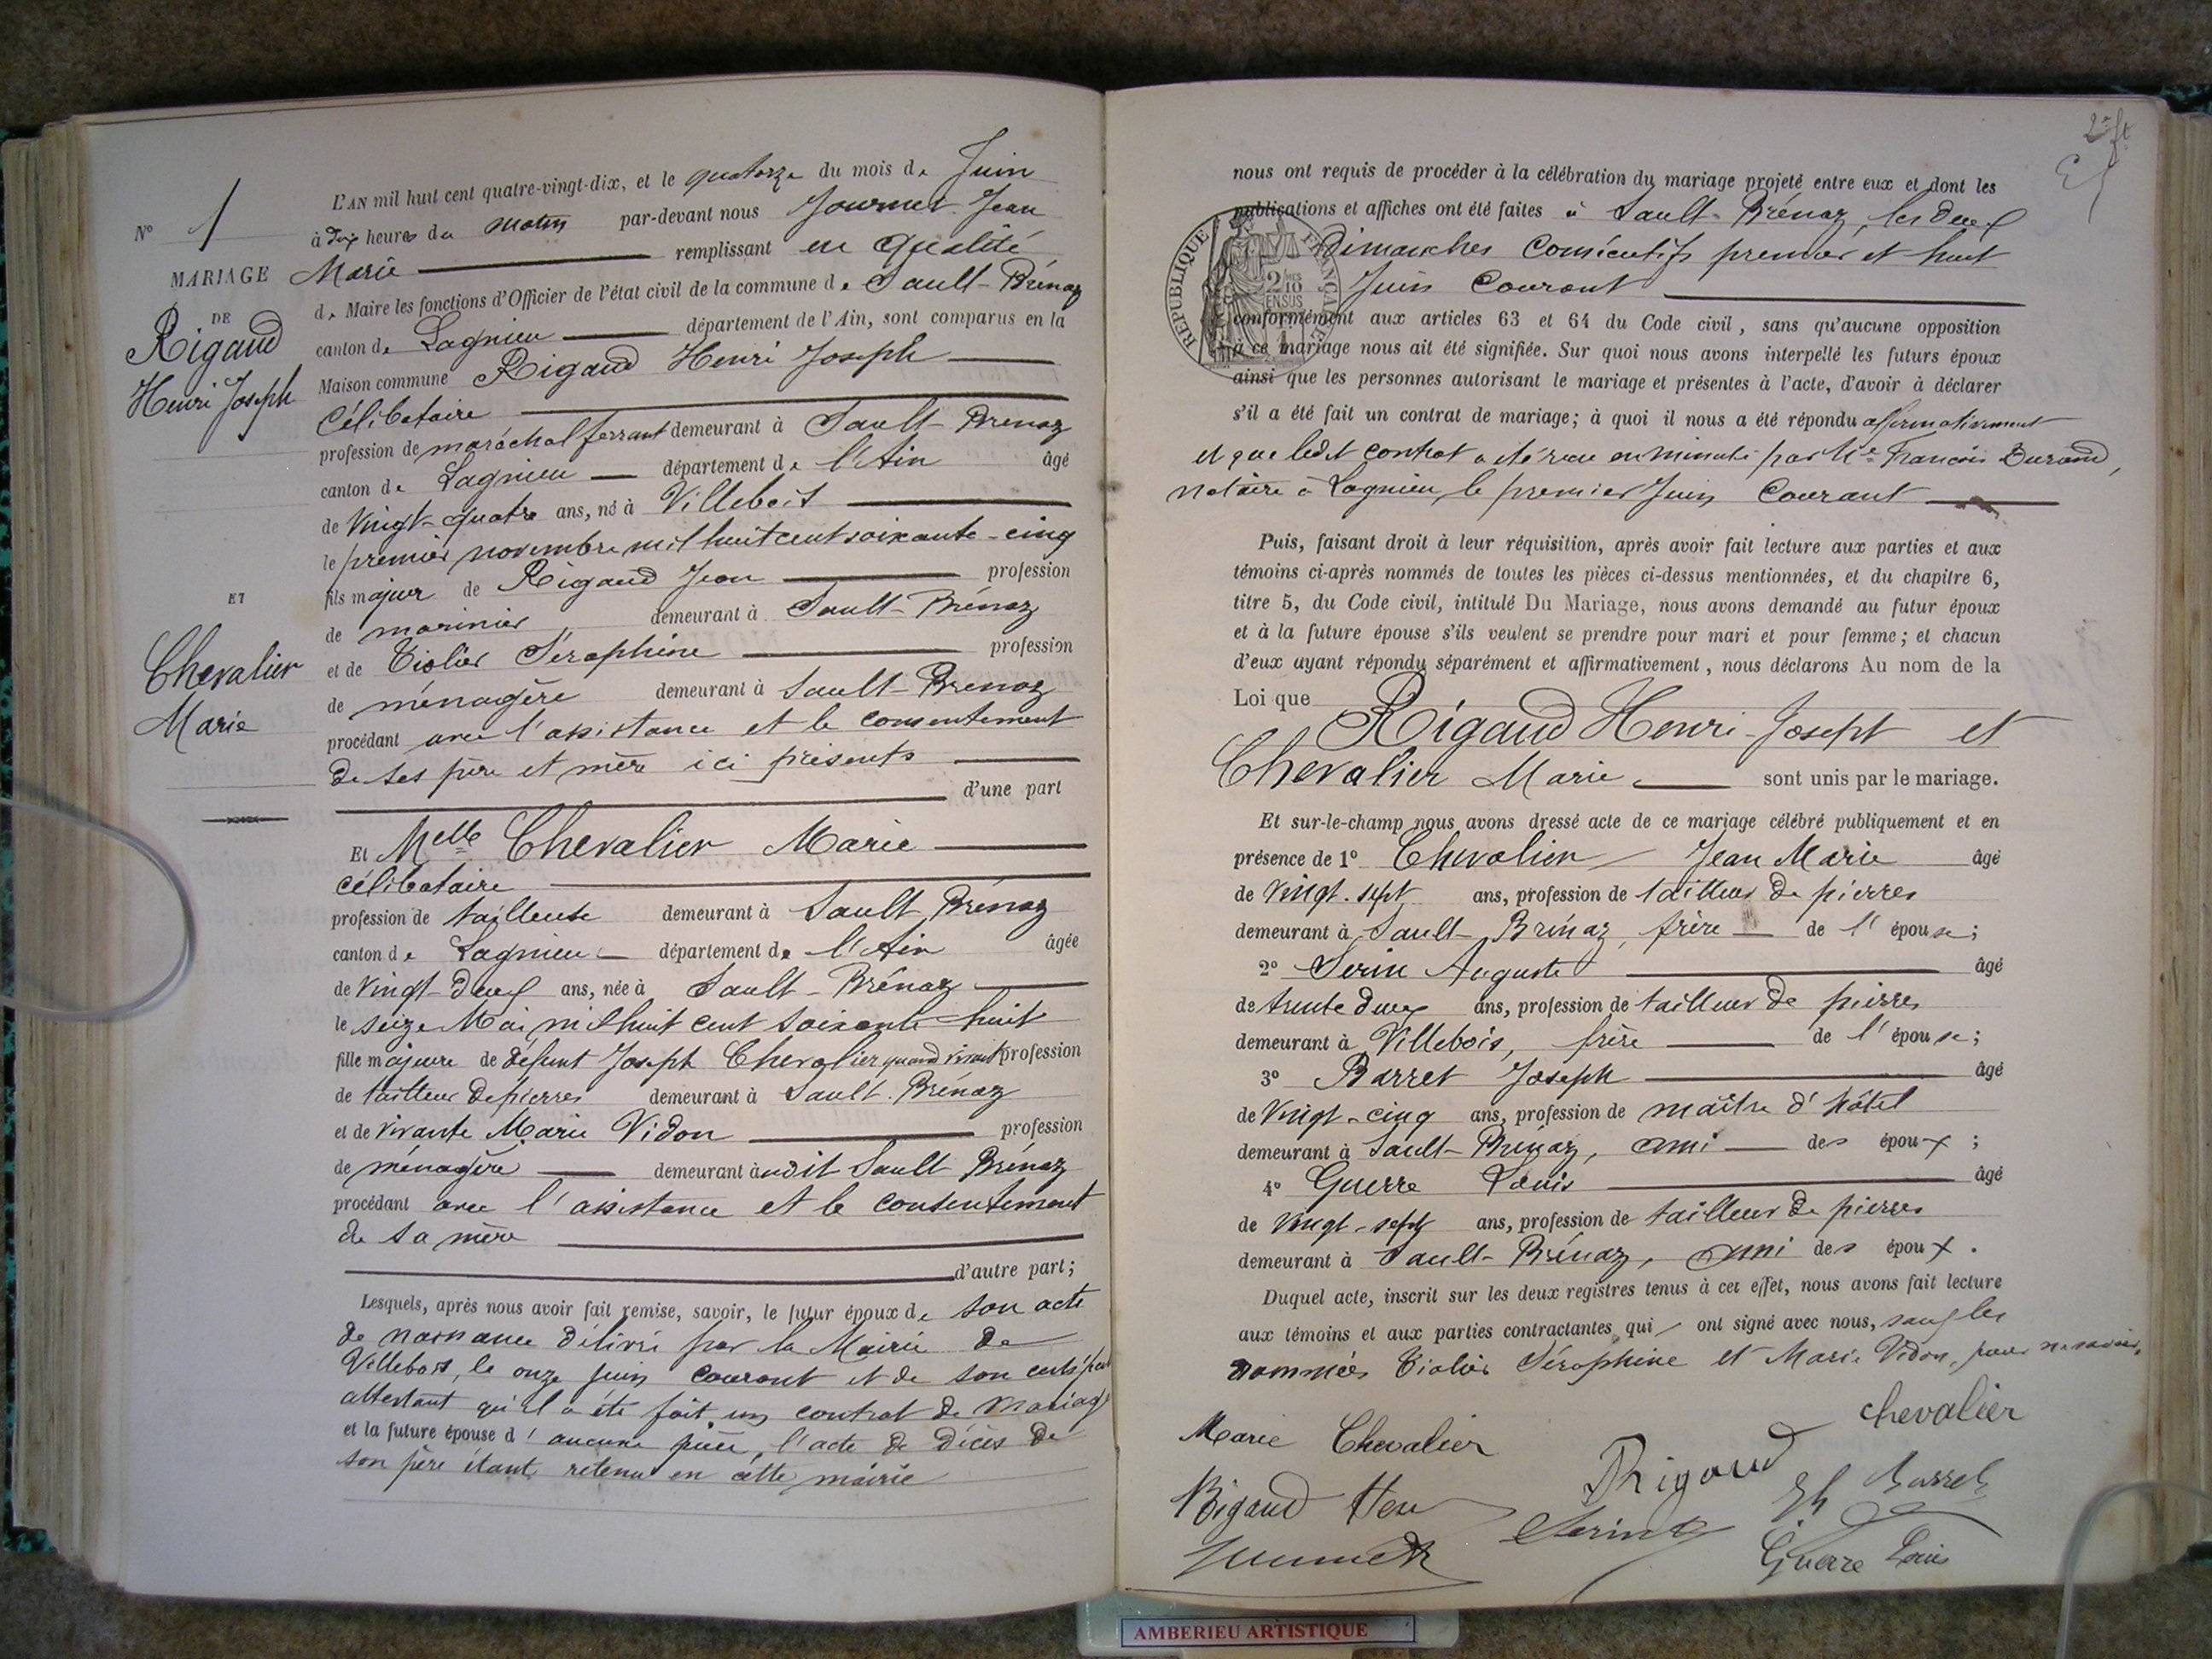 L'AN mil huit cent quatre-vingt-dix, et le quatorze du mois de Juin
à dix heures du matin par-devant nous Journet Jean
Marie remplissant en qualité
de Maire les fonctions d'Officier de l'état civil de la commune de Sault-Brénaz
canton de Lagnieu département de l'Ain, sont comparus en la
Maison commune Rigaud Henri Joseph
Célibataire
profession de maréchal ferrant demeurant à Sault-Brenaz
canton de Lagnieu département de l'Ain âgé
de Vingt-quatre ans, né à Villebois
le premier novembre mil huit cent soixante-cinq
fils majeur de Rigaud Jean profession
de marinier demeurant à Sault-Brénaz
et de Tiolier Séraphine profession
de ménagère demeurant à Sault-Brenaz
procédant avec l'assistance et le consentement
de ses père et mère ici présents
d'une part
Et Melle Chevalier Marie
célibataire
profession de tailleuse demeurant à Sault Brénaz
canton de Lagnieu département de l'Ain âgée
de Vingt-deux ans, née à Sault-Brénaz
le seize Mai mil huit cent soixante-huit
fille majeure de défunt Joseph Chevalier quand vivait profession
de tailleur de pierres demeurant à Sault-Brénaz
et de vivante Marie Vidon profession
de ménagère demeurant audit Sault Brénaz
procédant avec l'assistance et le consentement
de sa mère
d'autre part;
Lesquels, après nous avoir fait remise, savoir, le futur époux de son acte
de naissance délivré par la Mairie de
Villebois, le onze juin courant et de son certificat
attestant qu'il a été fait un contrat de mariage
et la future épouse d'aucune pièce, l'acte de décès de
son père étant retenu en cette mairie
N° 1
MARIAGE
DE
Rigaud
Henri Joseph
ET
Chevalier
Marie
2e ft
nous ont requis de procéder à la célébration du mariage projeté entre eux et dont les
publications et affiches ont été faites à Sault-Brénaz, les deux
Dimanches consécutifs premier et huit
Juin Courant
conformément aux articles 63 et 64 du Code civil, sans qu'aucune opposition
à ce mariage nous ait été signifiée. Sur quoi nous avons interpellé les futurs époux
ainsi que les personnes autorisant le mariage et présentes à l'acte, d'avoir à déclarer
s'il a été fait un contrat de mariage; à quoi il nous a été répondu affirmativement
et que ledit contrat a été reçu en minute par Me François Durand,
notaire à Lagnieu, le premier Juin Courant
Puis, faisant droit à leur réquisition, après avoir fait lecture aux parties et aux
témoins ci-après nommés de toutes les pièces ci-dessus mentionnées, et du chapitre 6,
titre 5, du Code civil, intitulé Du Mariage, nous avons demandé au futur époux
et à la future épouse s'ils veulent se prendre pour mari et pour femme; et chacun
d'eux ayant répondu séparément et affirmativement, nous déclarons Au nom de la
Loi que
Rigaud Henri-Joseph et
Chevalier Marie sont unis par le mariage.
Et sur-le-champ nous avons dressé acte de ce mariage célébré publiquement et en
présence de 1° Chevalier Jean Marie âgé
de vingt-sept ans, profession de tailleur de pierres
demeurant à Sault-Brénaz, frère de l'épouse;
2° Serin Auguste âgé
de trente deux ans, profession de tailleur de pierres
demeurant à Villebois, frère de l'épouse;
3° Barret Joseph âgé
de Vingt-cinq ans, profession de maître d'hôtel
demeurant à Sault-Brenaz, ami des époux;
4° Guerre Louis âgé
de vingt-sept ans, profession de tailleur de pierres
demeurant à Sault-Brénaz, ami des époux.
Duquel acte, inscrit sur les deux registres tenus à cet effet, nous avons fait lecture
aux témoins et aux parties contractantes qui ont signé avec nous, sauf les
nommées Tiolier Séraphine et Marie Vidon, pour ne savoir.
chevalier
Marie Chevalier
Rigaud
Barret
Rigaud Hen
Serin
Guerre Louis
Journet
RÉPUBLIQUE FRANÇAISE
2/10
EN SUS
AMBERIEU ARTISTIQUE